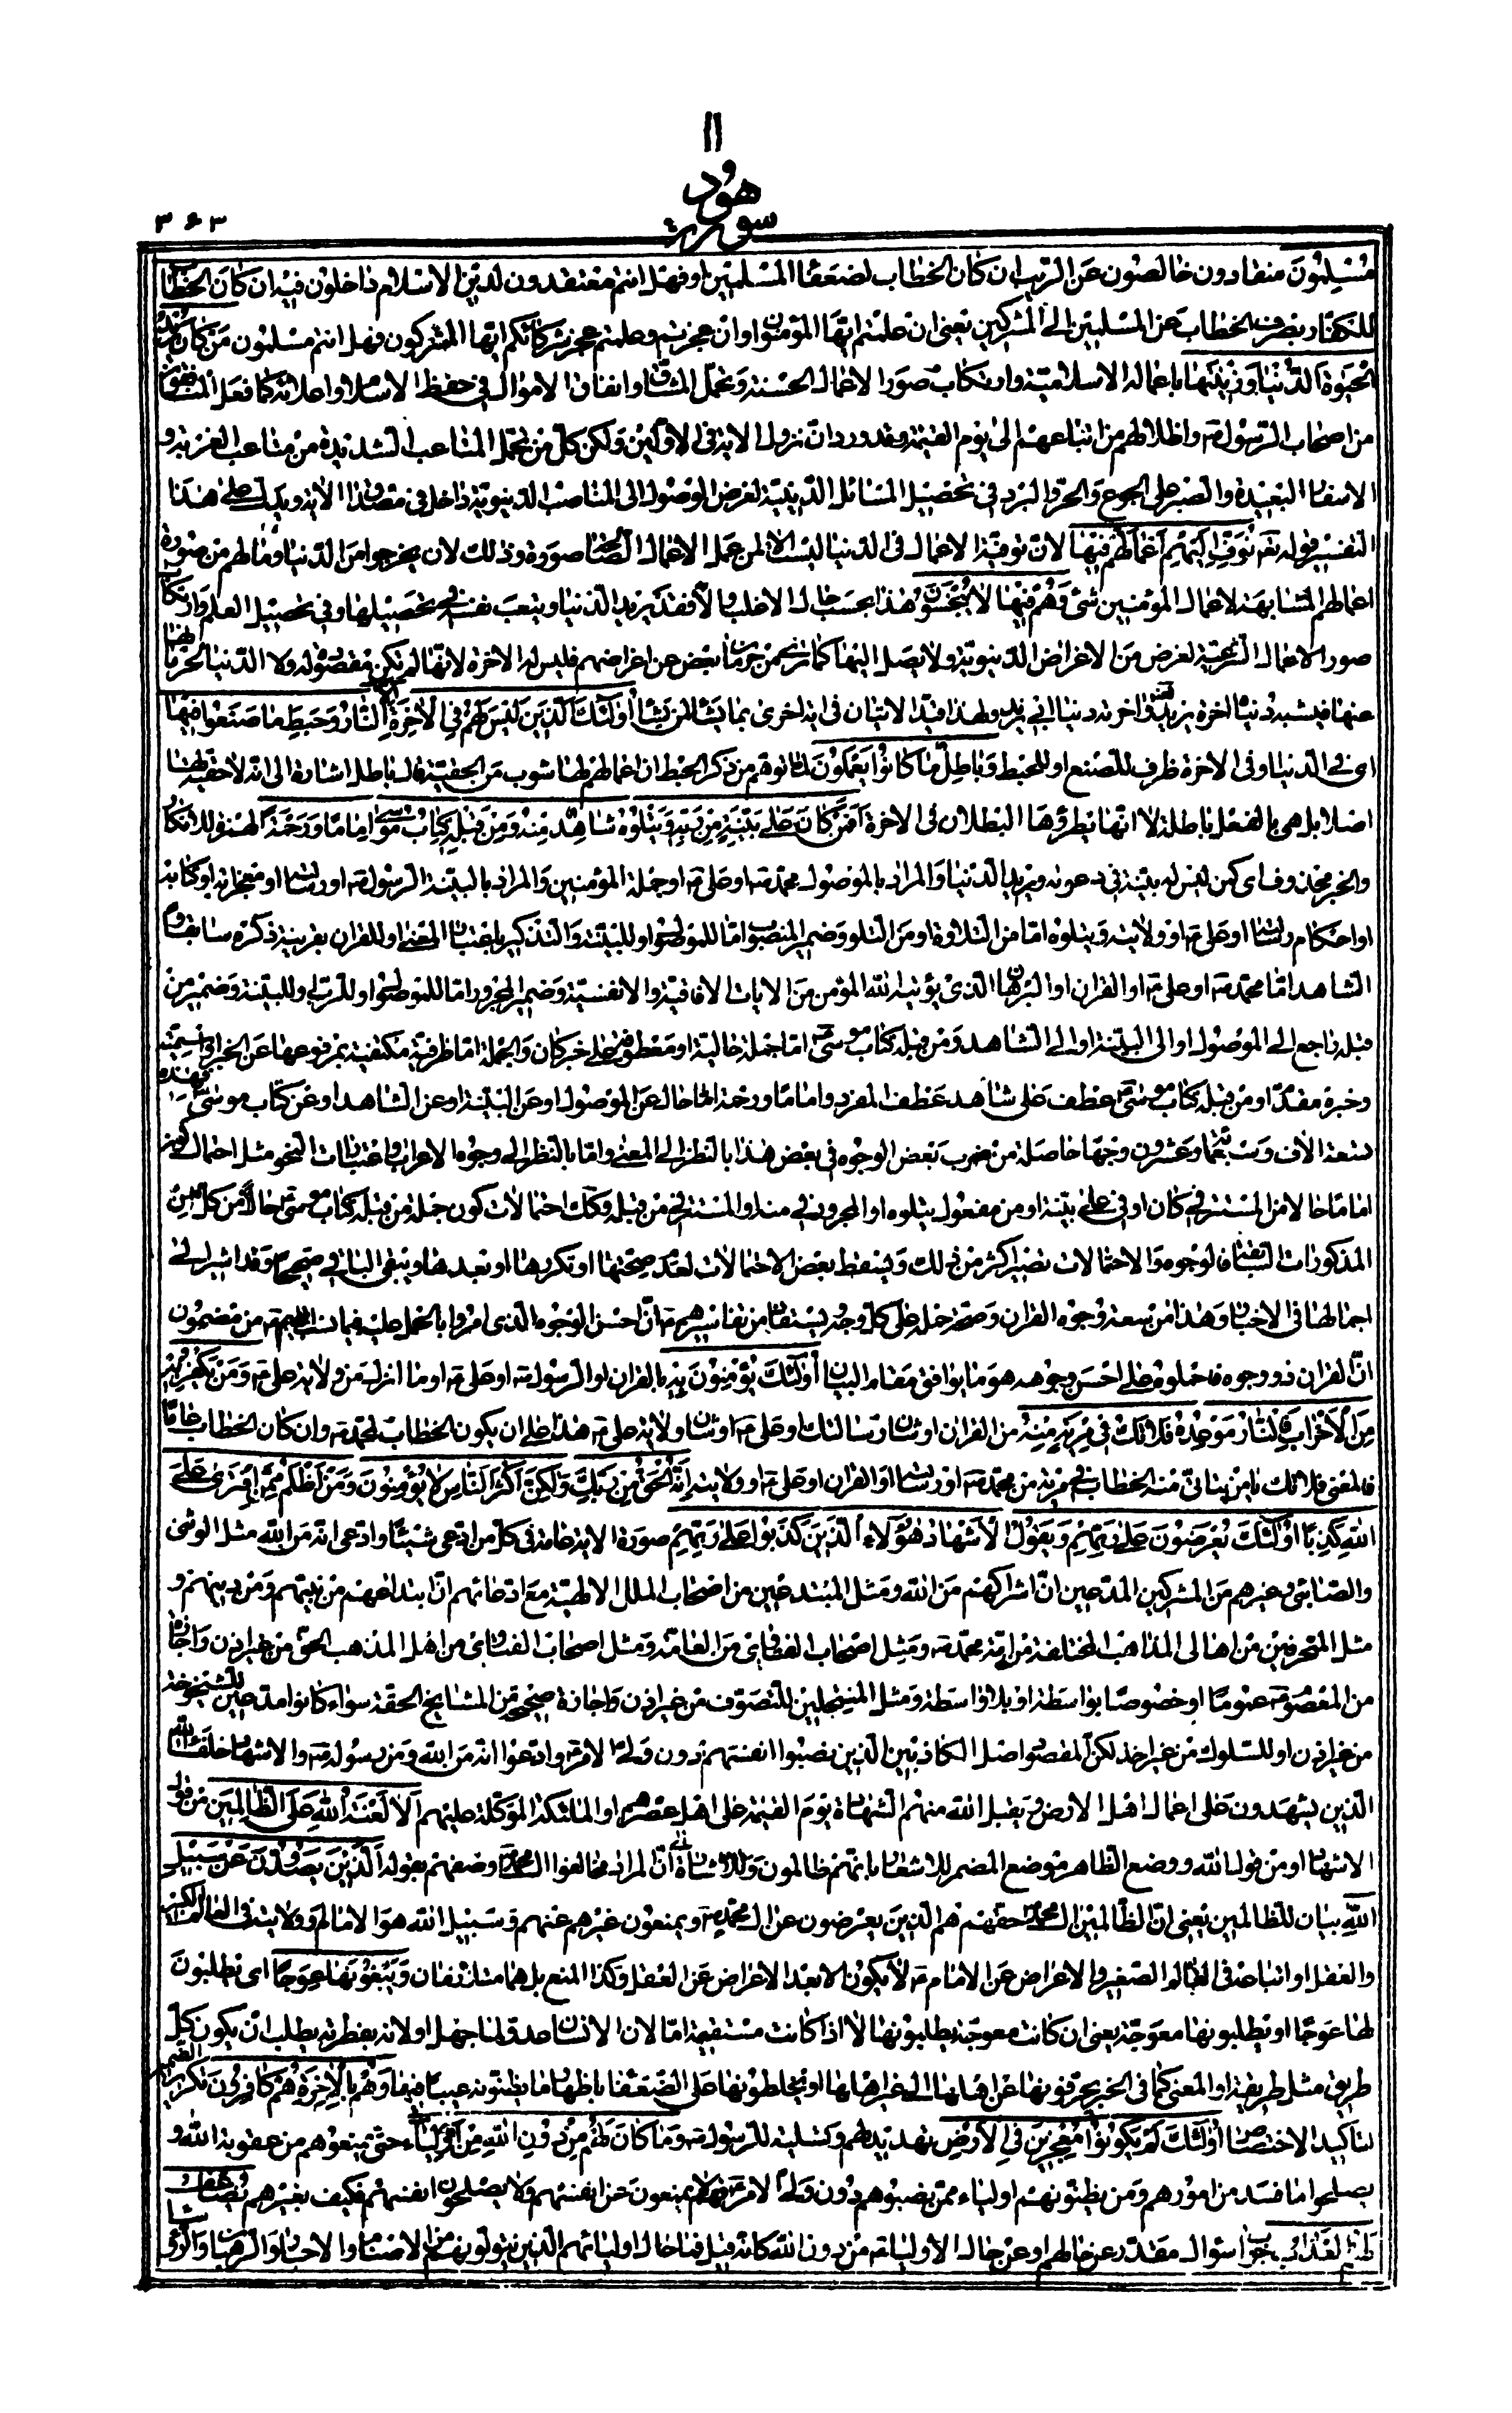 ١١
هود
سورة
٣٤٣
مُسْلِمُونَ منقادون خالصون عن الريب ان كان الخطاب لضعفاء المسلمين او فهل انتم معتقدون لدين الاسلام داخلون فيه ان كان الخطاب
للكفار بصرف الخطاب عن المسلمين الى المشركين يعنى ان علمتم ايها المؤمنون او ان عجزتم وعلمتم عجز شركائكم ايها المشركون فهل انتم مسلمون مَنْ كانَ يُريدُ
الْحَيٰوةَ الدُّنْيا وَزينَتَها باعماله الاسلامية وارتكاب صور الاعمال الحسنة وتحمل المشاق وانفاق الاموال فى حفظ الاسلام واعلائه كما فعل المنافقون
من اصحاب الرسول ص واظلالهم من اتباعهم الى يوم القيمة وقد ورد ان نزول الاية فى الاولين ولكن كل من تحمل المتاعب الشديدة من متاعب الغربة و
الاسفار البعيدة والصبر على الجوع والحر والبرد فى تحصيل المسائل الدينية لغرض الوصول الى المناصب الدنيوية داخل فى مصداق الاية ويدل على هذا
التفسير قوله تعه نُوَفِّ اِلَيْهِمْ اَعْمالَهُمْ فيها لان توفية الاعمال فى الدنيا ليست الا لمن عمل الاعمال الصالحة صورة وذلك لان يخرجوا من الدنيا وما لهم من صورة
اعمالهم المتشابهة لاعمال المؤمنين شئ وَهُمْ فيها لا يُبْخَسُونَ هذا بحسب حال الاغلب والا فقد يريد الدنيا ويتعب نفسه فى تحصيلها وفى تحصيل العلم وارتكاب
صور الاعمال الشرعية لغرض من الاغراض الدنيوية ولا يصل اليها كما نرى من حرمان بعض عن اغراضهم فليس له الاخرة لانها لم تكن مقصوده ولا الدنيا لحرمانه
عنها فيشبه دنياه اخرة يزيد واخرته دنيا ابى يزيد ولهذا قيد الاتيان فى اية اخرى بما يشاء لمن يشاء اُولٰئِكَ الَّذينَ لَيْسَ لَهُمْ فِى الْاٰخِرَةِ اِلَّا النّارُ وَحَبِطَ ما صَنَعُوا فيها
اى فى الدنيا وفى الاخرة ظرف للصنع او للحبط وَباطِلٌ ما كانُوا يَعْمَلُونَ لما توهم من ذكر الحبط ان اعمالهم لها شوب من الحقية قال باطل اشارة الى انه لا حقية لها
اصلا بل هى بالفعل باطلة لا انها يطرؤها البطلان فى الاخرة اَفَمَنْ كانَ عَلى بَيِّنَةٍ مِنْ رَبِّهِ وَيَتْلُوهُ شاهِدٌ مِنْهُ وَمِنْ قَبْلِهِ كِتابُ مُوسى اِماماً وَرَحْمَةً الهمزة للانكار
والخبر محذوف اى كمن ليس له بينة فى دعوته ويريد الدنيا والمراد بالموصول محمد ص او على ع او جملة المؤمنين والمراد بالبينة الرسول ص او رسالته او معجزاته او كتابه
او احكام رسالته او على ع او ولايته ويتلوه اما من التلاوة او من التلو وضمير المنصوب اما للموصول او للبينة والتذكير باعتبار المعنى او للقران بقرينة ذكره سابقا و
الشاهد اما محمد ص او على ع او القران او البرهان الذى يؤتيه الله المؤمن من الايات الافاقية والانفسية وضمير المجرور اما للموصول او للرب او للبينة وضمير من
قبله راجع الى الموصول او الى البينة او الى الشاهد ومن قبله كتاب موسى ع اما جملة حالية او معطوفة على خبر كان والجملة اما ظرفية مكتفية بمرفوعها عن الخبر او اسمية
وخبره مقدم او من قبله كتاب موسى ع عطف على شاهد عطف المفرد واماما ورحمة اما حال عن الموصول او عن البينة او عن الشاهد او عن كتاب موسى ع فهذه
المذكورات
اجمالها فى الاخبار وهذا من سعة وجوه القران وصحة حمله على كل وجه يستفاد من تفاسيرهم ع ان احسن الوجوه الذى امروا بالحمل عليه فيما نسب اليهم ع من مضمون
ان القران ذو وجوه فاحملوه على احسن وجوهه هو ما يوافق مقام البيان اُولٰئِكَ يُؤْمِنُونَ بِهِ بالقران او الرسول ص او على ع او ما انزل من ولاية على ع وَمَنْ يَكْفُرْ بِهِ
مِنَ الْاَحْزابِ فَالنّارُ مَوْعِدُهُ فَلا تَكُ فى مِرْيَةٍ مِنْهُ من القران او شان رسالتك او على ع او شان ولاية على ع هذا على ان يكون الخطاب لمحمد ص وان كان الخطاب عاما
فالمعنى فلا تك يا من يتاتى منه الخطاب فى مرية من محمد ص او رسالته او القران او على ع او ولايته اِنَّهُ الْحَقُّ مِنْ رَبِّكَ وَلٰكِنَّ اَكْثَرَ النّاسِ لا يُؤْمِنُونَ وَمَنْ اَظْلَمُ مِمَّنِ افْتَرى عَلَى
اللهِ كَذِباً اُولٰئِكَ يُعْرَضُونَ عَلى رَبِّهِمْ وَيَقُولُ الْاَشْهادُ هٰؤُلاءِ الَّذينَ كَذَبُوا عَلى رَبِّهِمْ صورة الاية عامة فى كل من ادعى شيئا وادعى انه من الله مثل الوثنى
والصابئى وغيرهم من المشركين المدعين ان اشراكهم من الله ومثل المبتدعين من اصحاب الملل الالهية مع ادعائهم ان ابتداعهم من نبيهم ومن دينهم و
مثل المنحرفين من اهالى المذاهب المختلفة من امة محمد ص ومثل اصحاب الفتاوى من العامة ومثل اصحاب الفتاوى من اهل المذهب الحق من غير اذن واجازة
من المعصوم ع عموما او خصوصا بواسطة او بلا واسطة ومثل المنتحلين للتصوف من غير اذن واجازة صحيحة من المشايخ الحقة سواء كانوا مدعين للشيخوخة
من غير اذن او للسلوك من غير اخذ لكن المقصود اصل الكاذبين الذين نصبوا انفسهم دون ولى الامر ع وادعوا انه من الله ومن رسوله ص والاشهاد خلفاء الله
الذين يشهدون على اعمال اهل الارض ويقبل الله منهم الشهادة يوم القيمة على اهل عصرهم او الملائكة الموكلة عليهم اَلا لَعْنَةُ اللهِ عَلَى الظّالِمينَ من قول
الاشهاد او من قول الله ووضع الظاهر موضع المضمر للاشعار بانهم ظالمون وللاشارة الى ان المراد مخالفوا ال محمد ص وصفهم بقوله اَلَّذينَ يَصُدُّونَ عَنْ سَبيلِ
اللهِ بيان للظالمين يعنى ان الظالمين ال محمد ص حقهم هم الذين يعرضون عن ال محمد ص ويمنعون غيرهم عنهم وسبيل الله هو الامام ع وولايته فى العالم الكبير
والعقل او اتباعه فى العالم الصغير والاعراض عن الامام ع لا يكون الا بعد الاعراض عن العقل وكذا المنع بل هما متلازمان وَيَبْغُونَها عِوَجاً اى يطلبون
لها عوجا او يطلبونها معوجة يعنى ان كانت معوجة يطلبونها لا اذا كانت مستقيمة اما لان الانسان عدو لما جهل او لانه بفطرته يطلب ان يكون كل
طريق مثل طريقه او المعنى كما فى الخبر يحرفونها عن اهلها الى غير اهلها او يخلطونها على الضعفاء باظهار ما يظنونه عيبا فيها وَهُمْ بِالْاٰخِرَةِ هُمْ كافِرُونَ تكرير الضمير
لتاكيد الاختصاص اُولٰئِكَ لَمْ يَكُونُوا مُعْجِزينَ فِى الْاَرْضِ تهديد لهم وتسلية للرسول ص وَما كانَ لَهُمْ مِنْ دُونِ اللهِ مِنْ اَوْلِياءَ حتى يمنعوهم من عقوبة الله و
يصلحوا ما فسد من امورهم ومن يظنونهم اولياء ممن نصبوهم دون ولى الامر ع فهم لا يمنعون عن انفسهم ولا يصلحون انفسهم فكيف بغيرهم يُضاعَفُ
لَهُمُ الْعَذابُ جواب سؤال مقدر عن حالهم او عن حال الاولياء من دون الله كانه قيل فما حال اوليائهم الذين يتولونهم من الاصنام والاحبار والرهبان